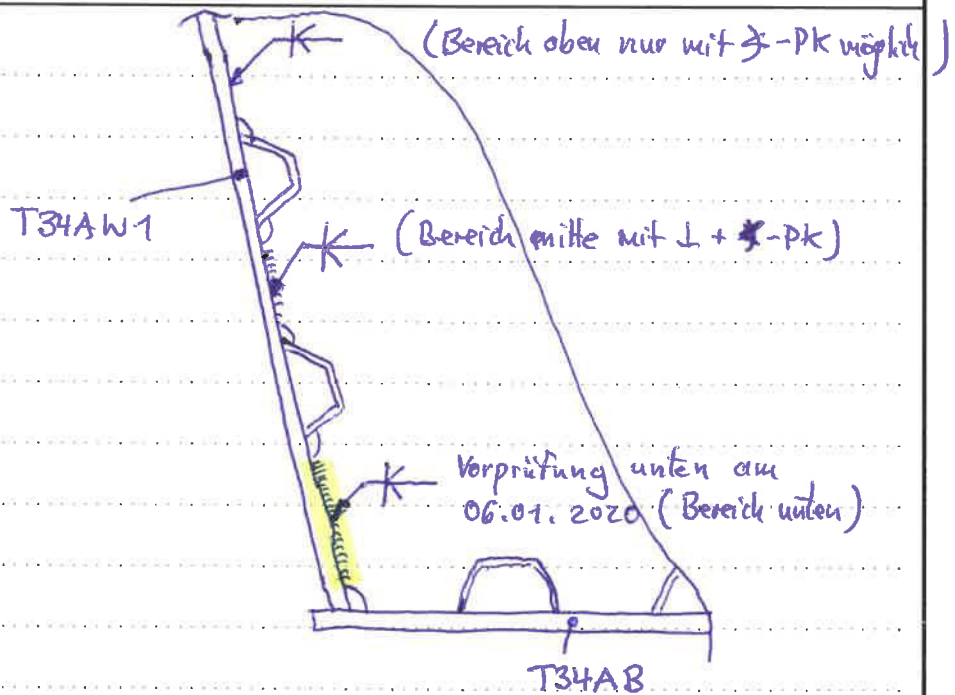 (Bereich oben nur mit ∡-PK möglich)
T34AW1
(Bereich mitte mit ⊥ + ∡-PK)
Vorprüfung unten am
06.01.2020 (Bereich unten)
T34AB